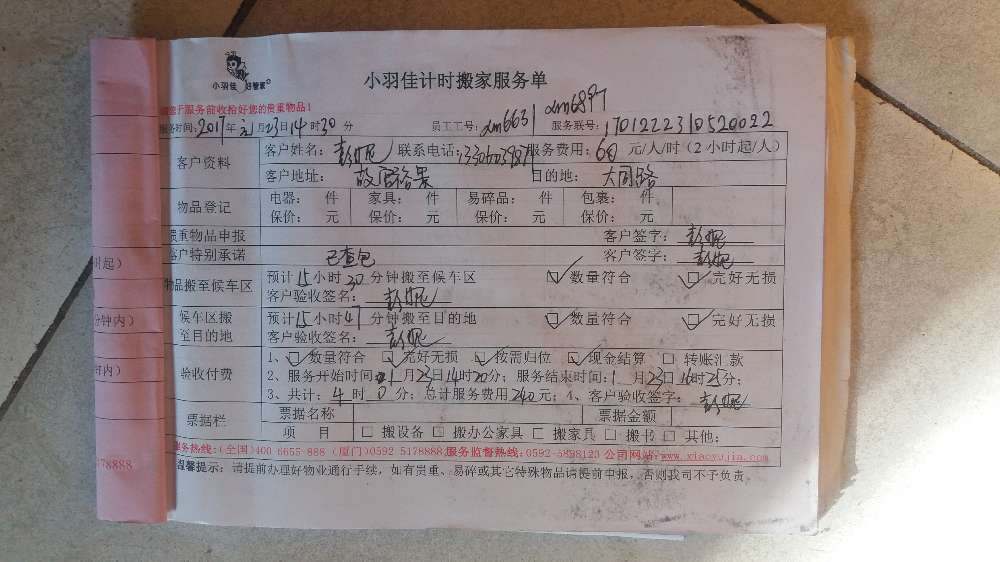 小羽佳 好管家
小羽佳计时搬家服务单
于服务前收拾好您的贵重物品！
服务时间：2017年元月23日14时30分 员工工号：xm6631 xm6897 服务联号：1701222310520022
客户资料 客户姓名：彭妮 联系电话： 服务费用：60元/人/时（2小时起/人）
客户地址： 目的地：大同路
物品登记 电器： 件 家具： 件 易碎品： 件 包裹： 件
保价： 元 保价： 元 保价： 元 保价： 元
贵重物品申报 客户签字：彭妮
客户特别承诺 已查包 客户签字：彭妮
时起）
物品搬至候车区 预计15小时30分钟搬至候车区 ☑数量符合 ☑完好无损
客户验收签名：彭妮
分钟内） 候车区搬 预计15小时47分钟搬至目的地 ☑数量符合 ☑完好无损
至目的地 客户验收签名：彭妮
时内） 验收付费 1、☑数量符合 ☑完好无损 ☑按需归位 ☑现金结算 □转账汇款
2、服务开始时间：1月23日14时20分；服务结束时间：1月23日16时25分；
3、共计：4时0分；总计服务费用240元；4、客户验收签字：彭妮
票据栏 票据名称 票据金额
项 目 □搬设备 □搬办公家具 □搬家具 □搬书 □其他：
服务热线：(全国)400 6655 888 (厦门)0592 5178888 服务监督热线：0592-5898123 公司网站：www.xiaoyujia.com
5178888
温馨提示：请提前办理好物业通行手续，如有贵重、易碎或其它特殊物品请提前申报，否则我司不予负责